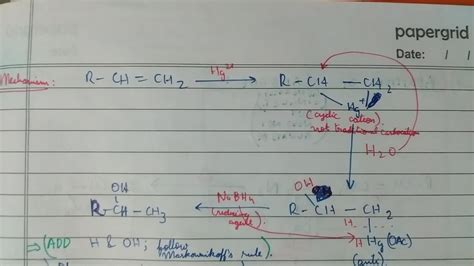 papergrid
Date: / /
Mechanism: R-CH=CH₂ Hg²⁺ R-CH-CH₂
Hg⁺
(cyclic cation).
not traditional carbocation
H₂O
OH
R-CH-CH₃ NaBH₄ OH R-CH-CH₂
(reducing agent) H
H Hg(OAc)
⇒ (ADD H & OH; follow
Markownikoff's rule)
(anti)